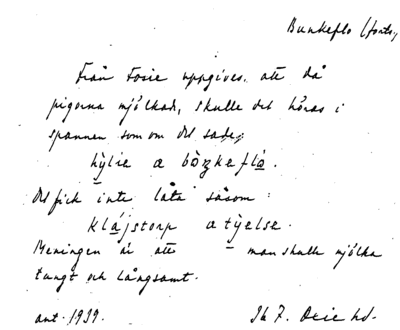 Bunkeflo (forts.,
Från Fosie uppgives, att då
pigorna mjölkade, skulle det höras i
spannen som om det sade:
hỳlie a bòŋkeflá.
Det fick inte låta såsom:
klájstorp a tỳelse.
Meningen är att – man skulle mjölka
tungt och långsamt.
ant. 1939.